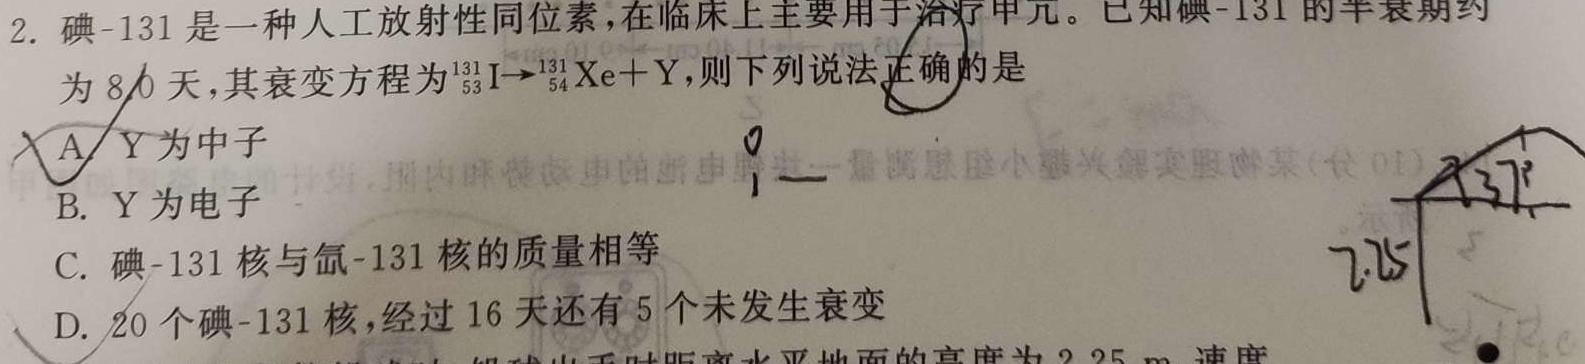 2. 碘-131 是一种人工放射性同位素,在临床上主要用于治疗甲亢。已知碘-131 的半衰期约
为 8.0 天,其衰变方程为 ¹³¹₅₃I→¹³¹₅₄Xe+Y,则下列说法正确的是
A. Y 为中子
0
37°
1 —
B. Y 为电子
2.25
C. 碘-131 核与氙-131 核的质量相等
D. 20 个碘-131 核,经过 16 天还有 5 个未发生衰变
出手时距离水平地面的高度为 2.25 m,速度